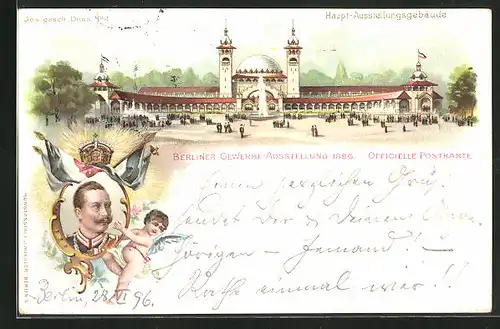 Ges. gesch. Dess. No 1
Haupt-Ausstellungsgebäude
BERLINER GEWERBE AUSSTELLUNG 1896. OFFICIELLE POSTKARTE
Einen herzlichen Gruß!
sendet Dir & Deinen Ange-
hörigen – Jemand!
Rathe einmal wer!!
Berlin, 28 VI 96.